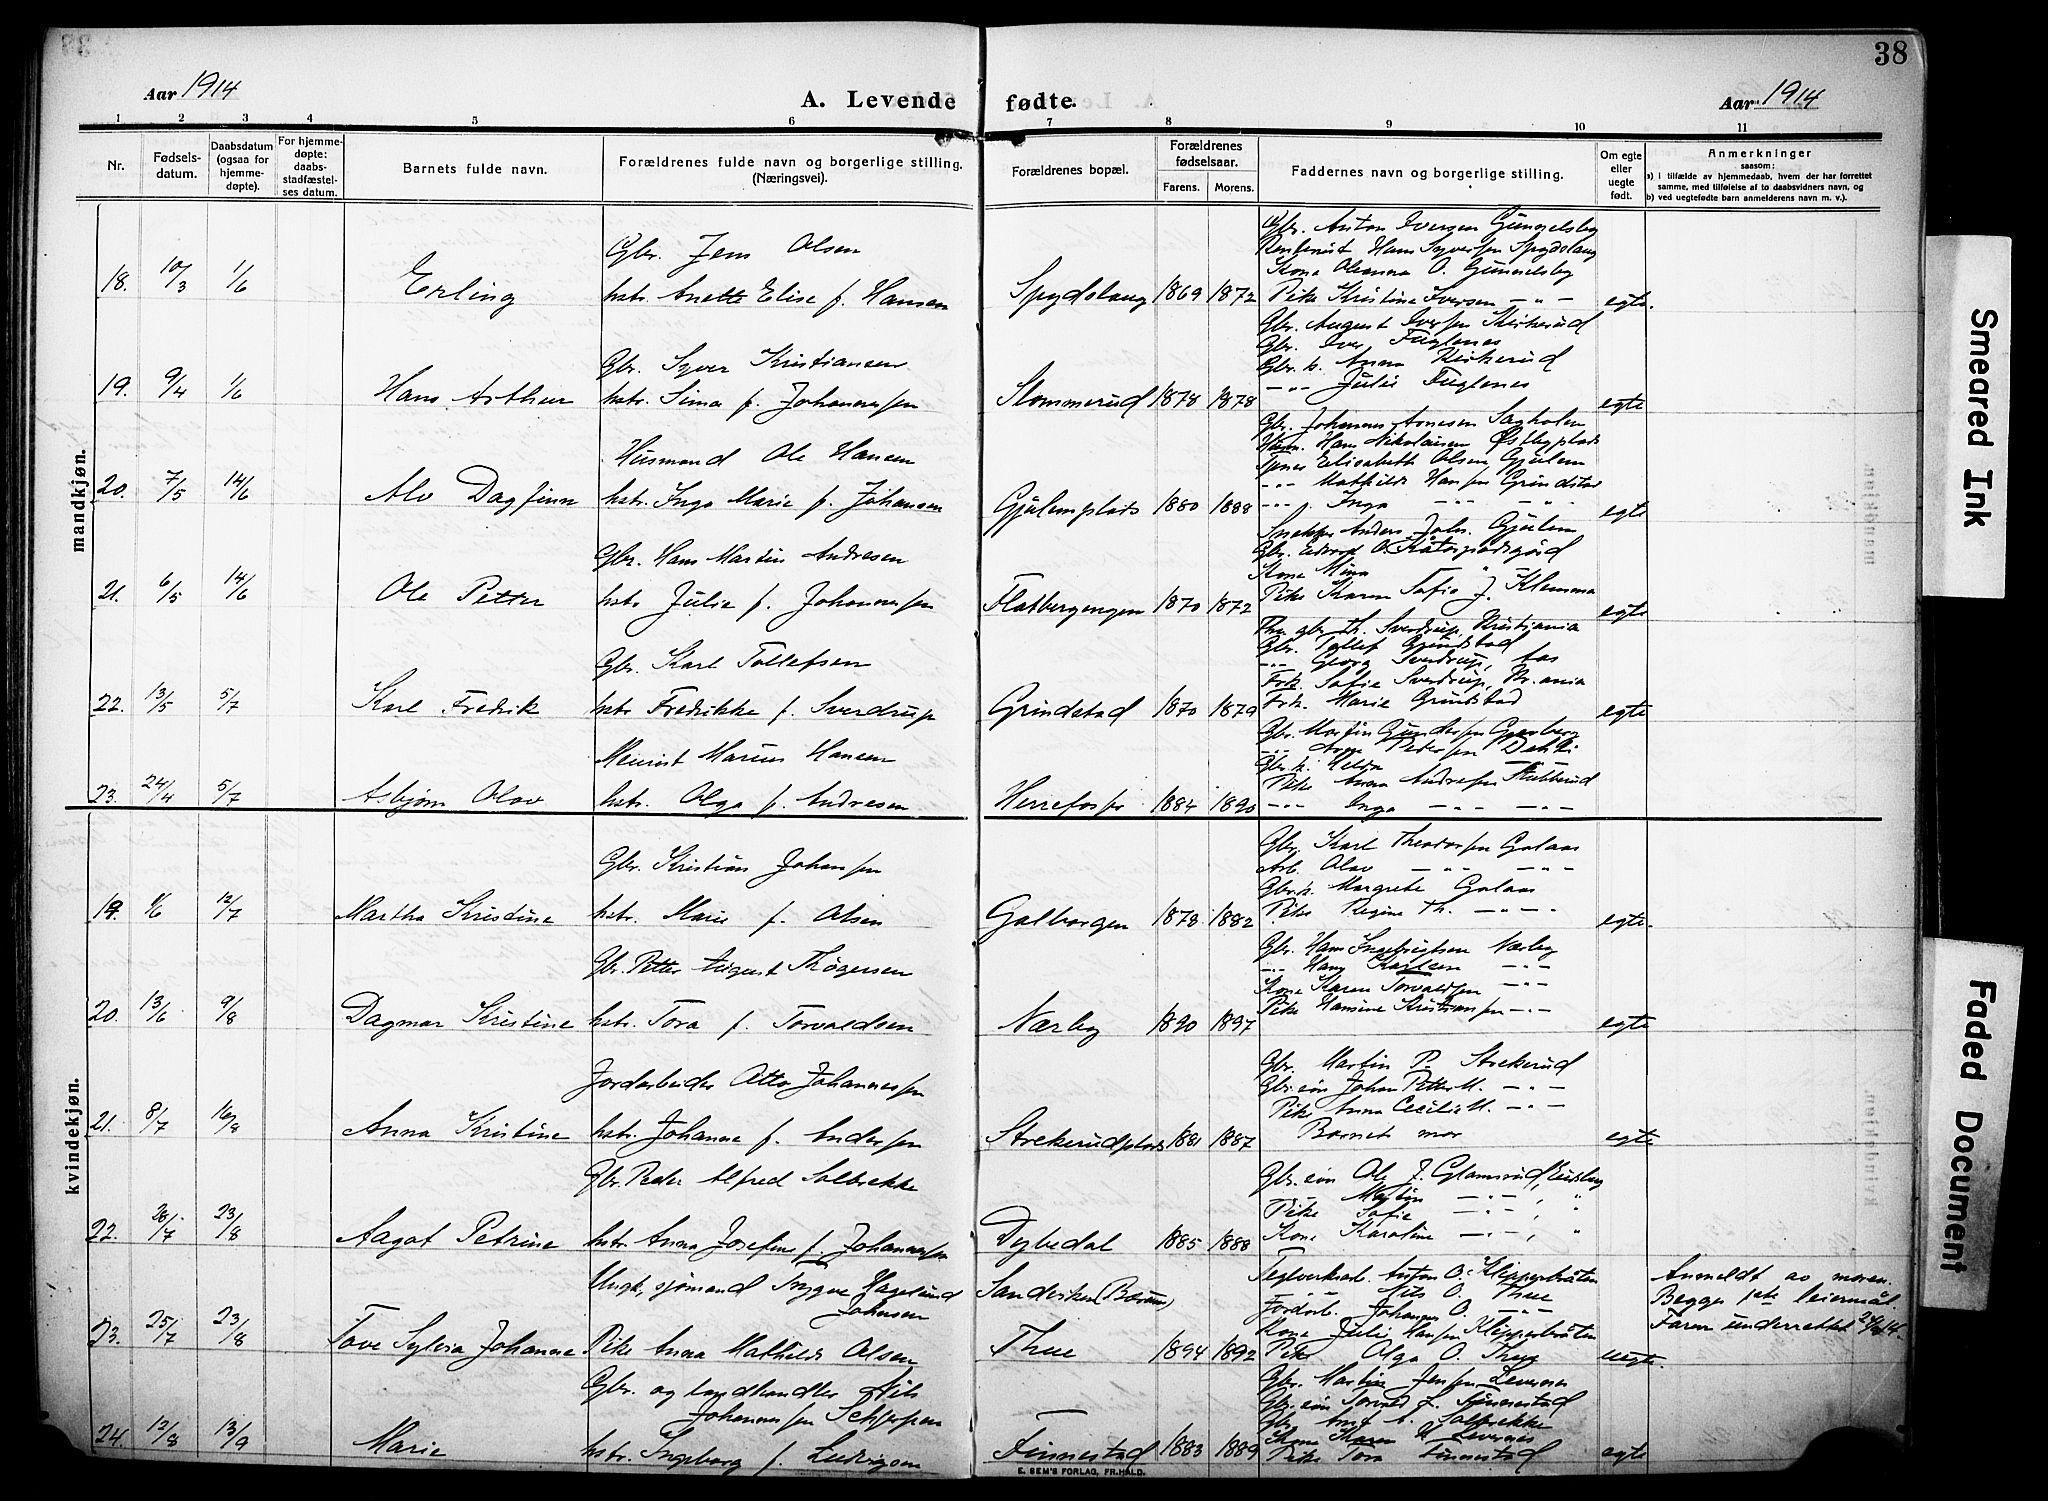 38
Aar 1914
A. Levende fødte.
Aar 1914
1 2 3 4 5 6 7 8 9 10 11
Nr.
Fødsels-
datum.
Daabsdatum
(ogsaa for
hjemme-
døpte).
For hjemme-
døpte:
daabs-
stadfæstel-
ses datum.
Barnets fulde navn.
Forældrenes fulde navn og borgerlige stilling.
(Næringsvei).
Forældrenes bopæl.
Forældrenes
fødselsaar.
Farens. Morens.
Faddernes navn og borgerlige stilling.
Om egte
eller
uegte
født.
Anmerkninger
saasom:
a) i tilfælde av hjemmedaab, hvem der har forrettet
samme, med tilføielse af to daabsvidners navn, og
b) ved uegtefødte barn anmelderens navn m. v.).
mandkjøn.
Gbr. Jens Olsen
18. 10/3 1/6 Erling hstr. Anette Elise f. Hansen Spydslaug 1869 1872 egte.
Gbr. Anton Iversen Gunnelsby
Rentenist Hans Syversen Spydslaug
Kone Oleanna O. Gunnelsby
Pike Kristine Iversen -"-
Gbr. Syver Kristiansen
19. 9/4 1/6 Hans Arthur hstr. Sina f. Johannessen Slommerud 1878 1878 egte
Gbr. August Iversen Kirkerud
Gbr. Iver Fuglenes
Gbr. k. Anna Kirkerud
-"- Julie Fuglenes
Husmand Ole Hansen
20. 7/5 14/6 Alv Dagfinn hstr. Inga Marie f. Johansen Gjulemplads 1880 1888 egte
Gbr. Johannes Arnesen Sagholen
Husm. Hans Nikolaisen Østbyplads
Elisabeth Olsen Gjulem
-"- Mathilde Hansen Grindstad
-"- Inga -"- -"-
Gbr. Hans Martin Andresen
21. 6/5 14/6 Ole Petter hstr. Julie f. Johannessen Flatbergengen 1870 1872 egte
Anders Johs. Gjulem
Gbr. Edvard O.
Kone Mina "
Pike Karen Sofie J. Klemma
Gbr. Karl Tollefsen
22. 13/5 5/7 Karl Fredrik hstr. Fredrikke f. Sverdrup Grindstad 1870 1879 egte
Th. Sverdrup, Kristiania
Gbr. Tollef Grindstad
-"- Georg Sverdrup, Aas
Frk. Sofie Sverdrup, Kr.ania
Frk. Marie Grindstad
Murer Marius Hansen
23. 24/4 5/7 Asbjørn Olav hstr. Olga f. Andresen Herrefoss 1884 1890
Gbr. Martin Gundersen
-"- Arne Petersen Dehli
Gbr. k. Helda -"-
Pike Anna Andresen Stubberud
-"- Inga -"- -"-
kvindekjøn.
Gbr. Kristian Johansen
19. 1/6 12/7 Martha Kristine hstr. Marie f. Olsen Galborgen 1878 1882 egte.
Gbr. Karl Theodorsen Galaas
Arb. Olav -"- -"-
Gbr.k. Margrete Galaas
Pike Regine Th. -"-
Gbr. Petter August Thøgersen
20. 13/6 9/8 Dagmar Kristine hstr. Tora f. Torvaldsen Nærby 1890 1897 egte
Gbr. Hans Ingebrigtsen Nærby
-"- Hans Karlsen -"-
Kone Karen Torvaldsen -"-
Pike Hansine Kristiansen -"-
Jordarbeider Otto Johannessen
21. 8/7 16/8 Anna Kristine hstr. Johanne f. Andersen Strekerudplads 1881 1887 egte
Gbr. Martin P. Strekerud
Gbr. søn Johan Petter M. -"-
Pike Anna Cecilie M. -"-
Barnets mor
Gbr. Peder Alfred Solbrekke
22. 28/7 23/8 Aagot Petrine hstr. Anna Josefine f. Johannessen Dybedal 1885 1888
Gbr. søn Ole J. Glamsrud, Eidsberg
Martin -"-, "
Pike Sofie -"-, "
Kone Karoline -"-, "
Ungk., sjømand Trygve Hagelund
Johnsen
Sandviken (Bærum)
23. 25/7 23/8 Tove Sylvia Johanne Pike Anna Mathilde Olsen Thue 1894 1892 uegte.
Teglverksarb. Anton O. Klipperbråten
-"- Nils O. Thue
Jordarb. Johannes O. -"-
Kone Julie Hansen Klipperbråten
Pike Olga O. Thue
Anmeldt av moren.
Begges 1ste leiermål.
Faren underrettet
Gbr. og landhandler Nils
Johannessen Schjeppen
24. 12/8 13/9 Marie hstr. Ingeborg f. Ludvigsen Finnestad 1883 1889 egte
Gbr. Martin Jensen Levernes
Gbr. søn Torvald J. Finnestad
Gbr. A. Solbrekke
Kone Karen Levernes
Pike Tora Finnestad
E. SEM'S FORLAG, FR.HALD.
Smeared Ink
Faded Document